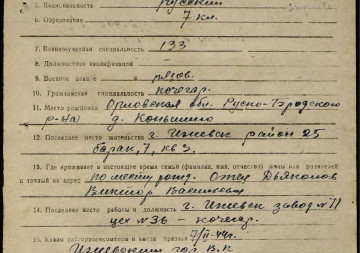 5. Национальность русский
6. Образование 7 кл.
7. Военно-учетная специальность 133
8. Должностная квалификация —
9. Военное звание рядов.
10. Гражданская специальность кочегар.
11. Место рождения Орловской обл. Русско-Бродского
р-на д. Коньшино
12. Последнее место жительства г. Ижевск район 25
барак, 7, кв 3.
13. Где проживает в настоящее время семья (фамилия, имя, отчество) жены или родителей
и точный их адрес по месту рожд. Отец Дьяконов
Виктор Васильевич
14. Последнее место работы и должность г. Ижевск завод № 71
цех № 36 – кочегар.
15. Каким райгорвоенкоматом и когда призван 7/II-44г.
Ижевским гор В.К